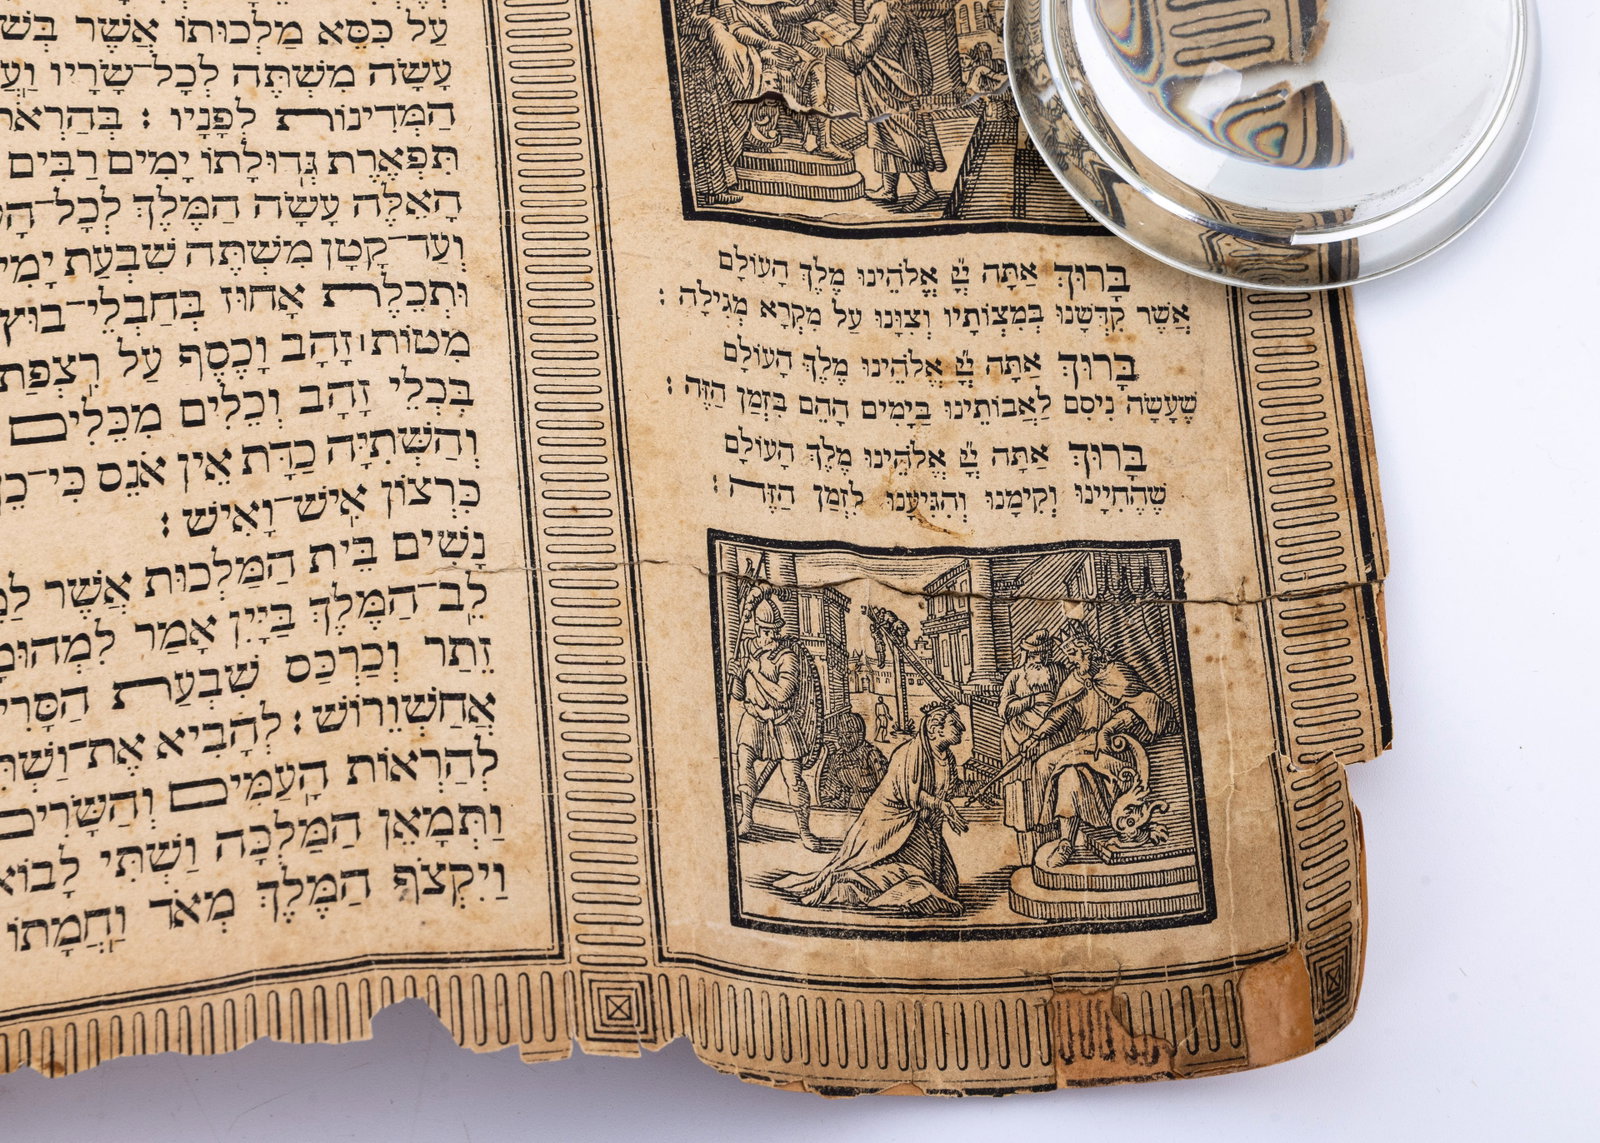 בָּרוּךְ אַתָּה יְיָ אֱלֹהֵינוּ מֶלֶךְ הָעוֹלָם
אֲשֶׁר קִדְּשָׁנוּ בְּמִצְוֹתָיו וְצִוָּנוּ עַל מִקְרָא מְגִילָה :
בָּרוּךְ אַתָּה יְיָ אֱלֹהֵינוּ מֶלֶךְ הָעוֹלָם
שֶׁעָשָׂה נִיסִם לַאֲבוֹתֵינוּ בַּיָּמִים הָהֵם בַּזְּמַן הַזֶּה :
בָּרוּךְ אַתָּה יְיָ אֱלֹהֵינוּ מֶלֶךְ הָעוֹלָם
שֶׁהֶחֱיָינוּ וְקִיְמָנוּ וְהִגִּיעָנוּ לִזְמַן הַזֶּה :
עַל כִּסֵּא מַלְכוּתוֹ אֲשֶׁר
עָשָׂה מִשְׁתֶּה לְכָל־שָׂרָיו
הַמְּדִינוֹת לְפָנָיו :
תִּפְאֶרֶת גְּדוּלָּתוֹ יָמִים רַבִּים
הָאֵלֶּה עָשָׂה הַמֶּלֶךְ
וְעַד־קָטָן מִשְׁתֶּה שִׁבְעַת
וּתְכֵלֶת אָחוּז בְּחַבְלֵי־בוּץ
מִטּוֹת׀זָהָב וָכֶסֶף עַל רִצְפַת
בִּכְלֵי זָהָב וְכֵלִים מִכֵּלִים
וְהַשְּׁתִיָּה כַדָּת אֵין אֹנֵס כִּי־כֵן
כִּרְצוֹן אִישׁ־וָאִישׁ :
נָשִׁים בֵּית הַמַּלְכוּת אֲשֶׁר
לֵב־הַמֶּלֶךְ בַּיָּיִן אָמַר
זֵתַר וְכַרְכַּס שִׁבְעַת
אֲחַשְׁוֵרוֹשׁ : לְהָבִיא אֶת־
לְהַרְאוֹת הָעַמִּים וְהַשָּׂרִים
וַתְּמָאֵן הַמַּלְכָּה וַשְׁתִּי
וַיִּקְצֹף הַמֶּלֶךְ מְאֹד וַחֲמָתוֹ